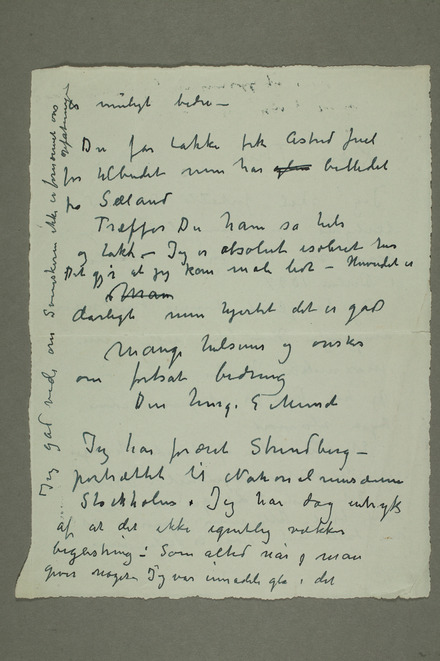 er muligt bedre —
Du får takke frk Astrid Juel
for tilbudet men har billedet
fra Sæland
Træffer Du ham så hils
og takk — Jeg er absolut isoleret her
Det gjør at jeg kan male lidt — Hovedet er
dårligt men hjertet det er god
Mange hilsener og ønsker
om fortsat bedring
Din heng. E Munch
Jeg har foræret Strindberg —
portrættet til Nationalmuseum
Stockholm. Jeg har dog indtryk
af at det ikke egentlig vækker
begejstring — Som altid når man
giver noget Jeg var i det
Jeg gad vide om Svenskerne ikke er fornærmet